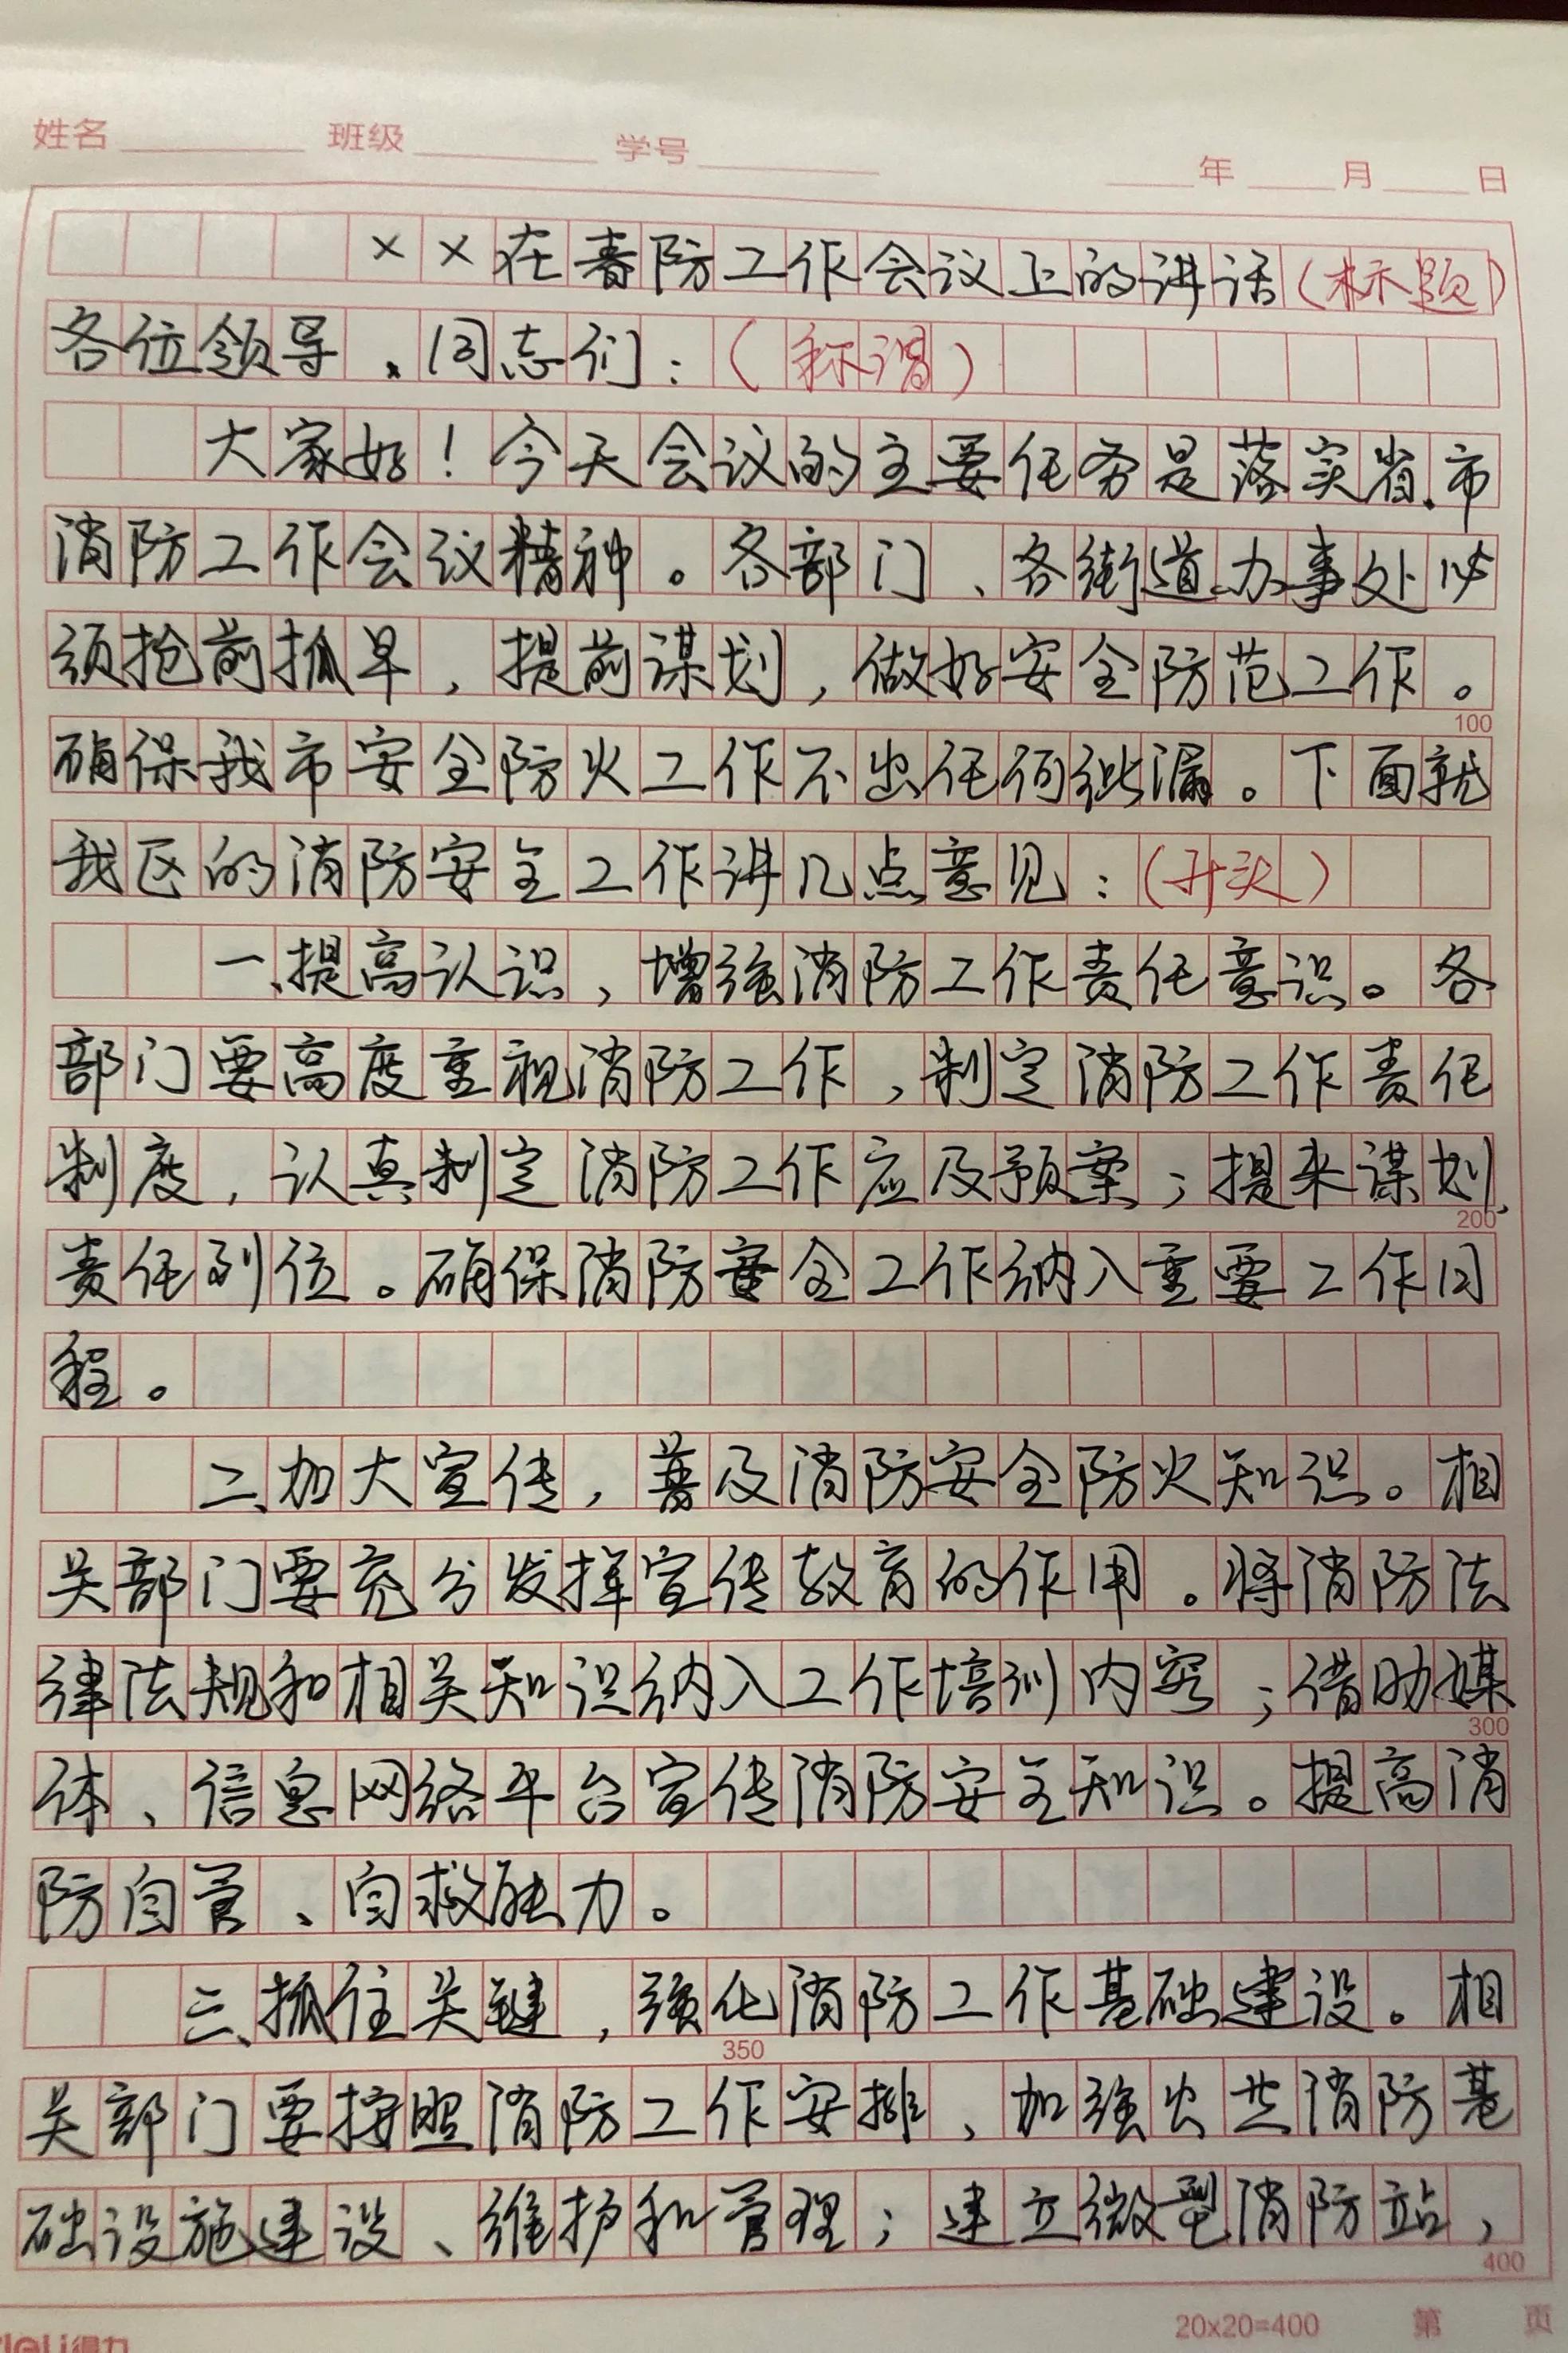 姓名 班级 学号 年 月 日
××在春防工作会议上的讲话(标题)
各位领导、同志们:(称谓)
大家好!今天会议的主要任务是落实省、市
消防工作会议精神。各部门、各街道办事处必
须抢前抓早,提前谋划,做好安全防范工作。
100
确保我市安全防火工作不出任何纰漏。下面就
我区的消防安全工作讲几点意见:(开头)
一、提高认识,增强消防工作责任意识。各
部门要高度重视消防工作,制定消防工作责任
制度,认真制定消防工作应及预案;提来谋划,
200
责任到位。确保消防安全工作纳入重要工作日
程。
二、加大宣传,普及消防安全防火知识。相
关部门要充分发挥宣传教育的作用。将消防法
律法规和相关知识纳入工作培训内容;借助媒
300
体、信息网络平台宣传消防安全知识。提高消
防自管、自救能力。
三、抓住关键,强化消防工作基础建设。相
350
关部门要按照消防工作安排、加强公共消防基
础设施建设、维护和管理;建立微型消防站,
400
deli得力 20x20=400 第 页